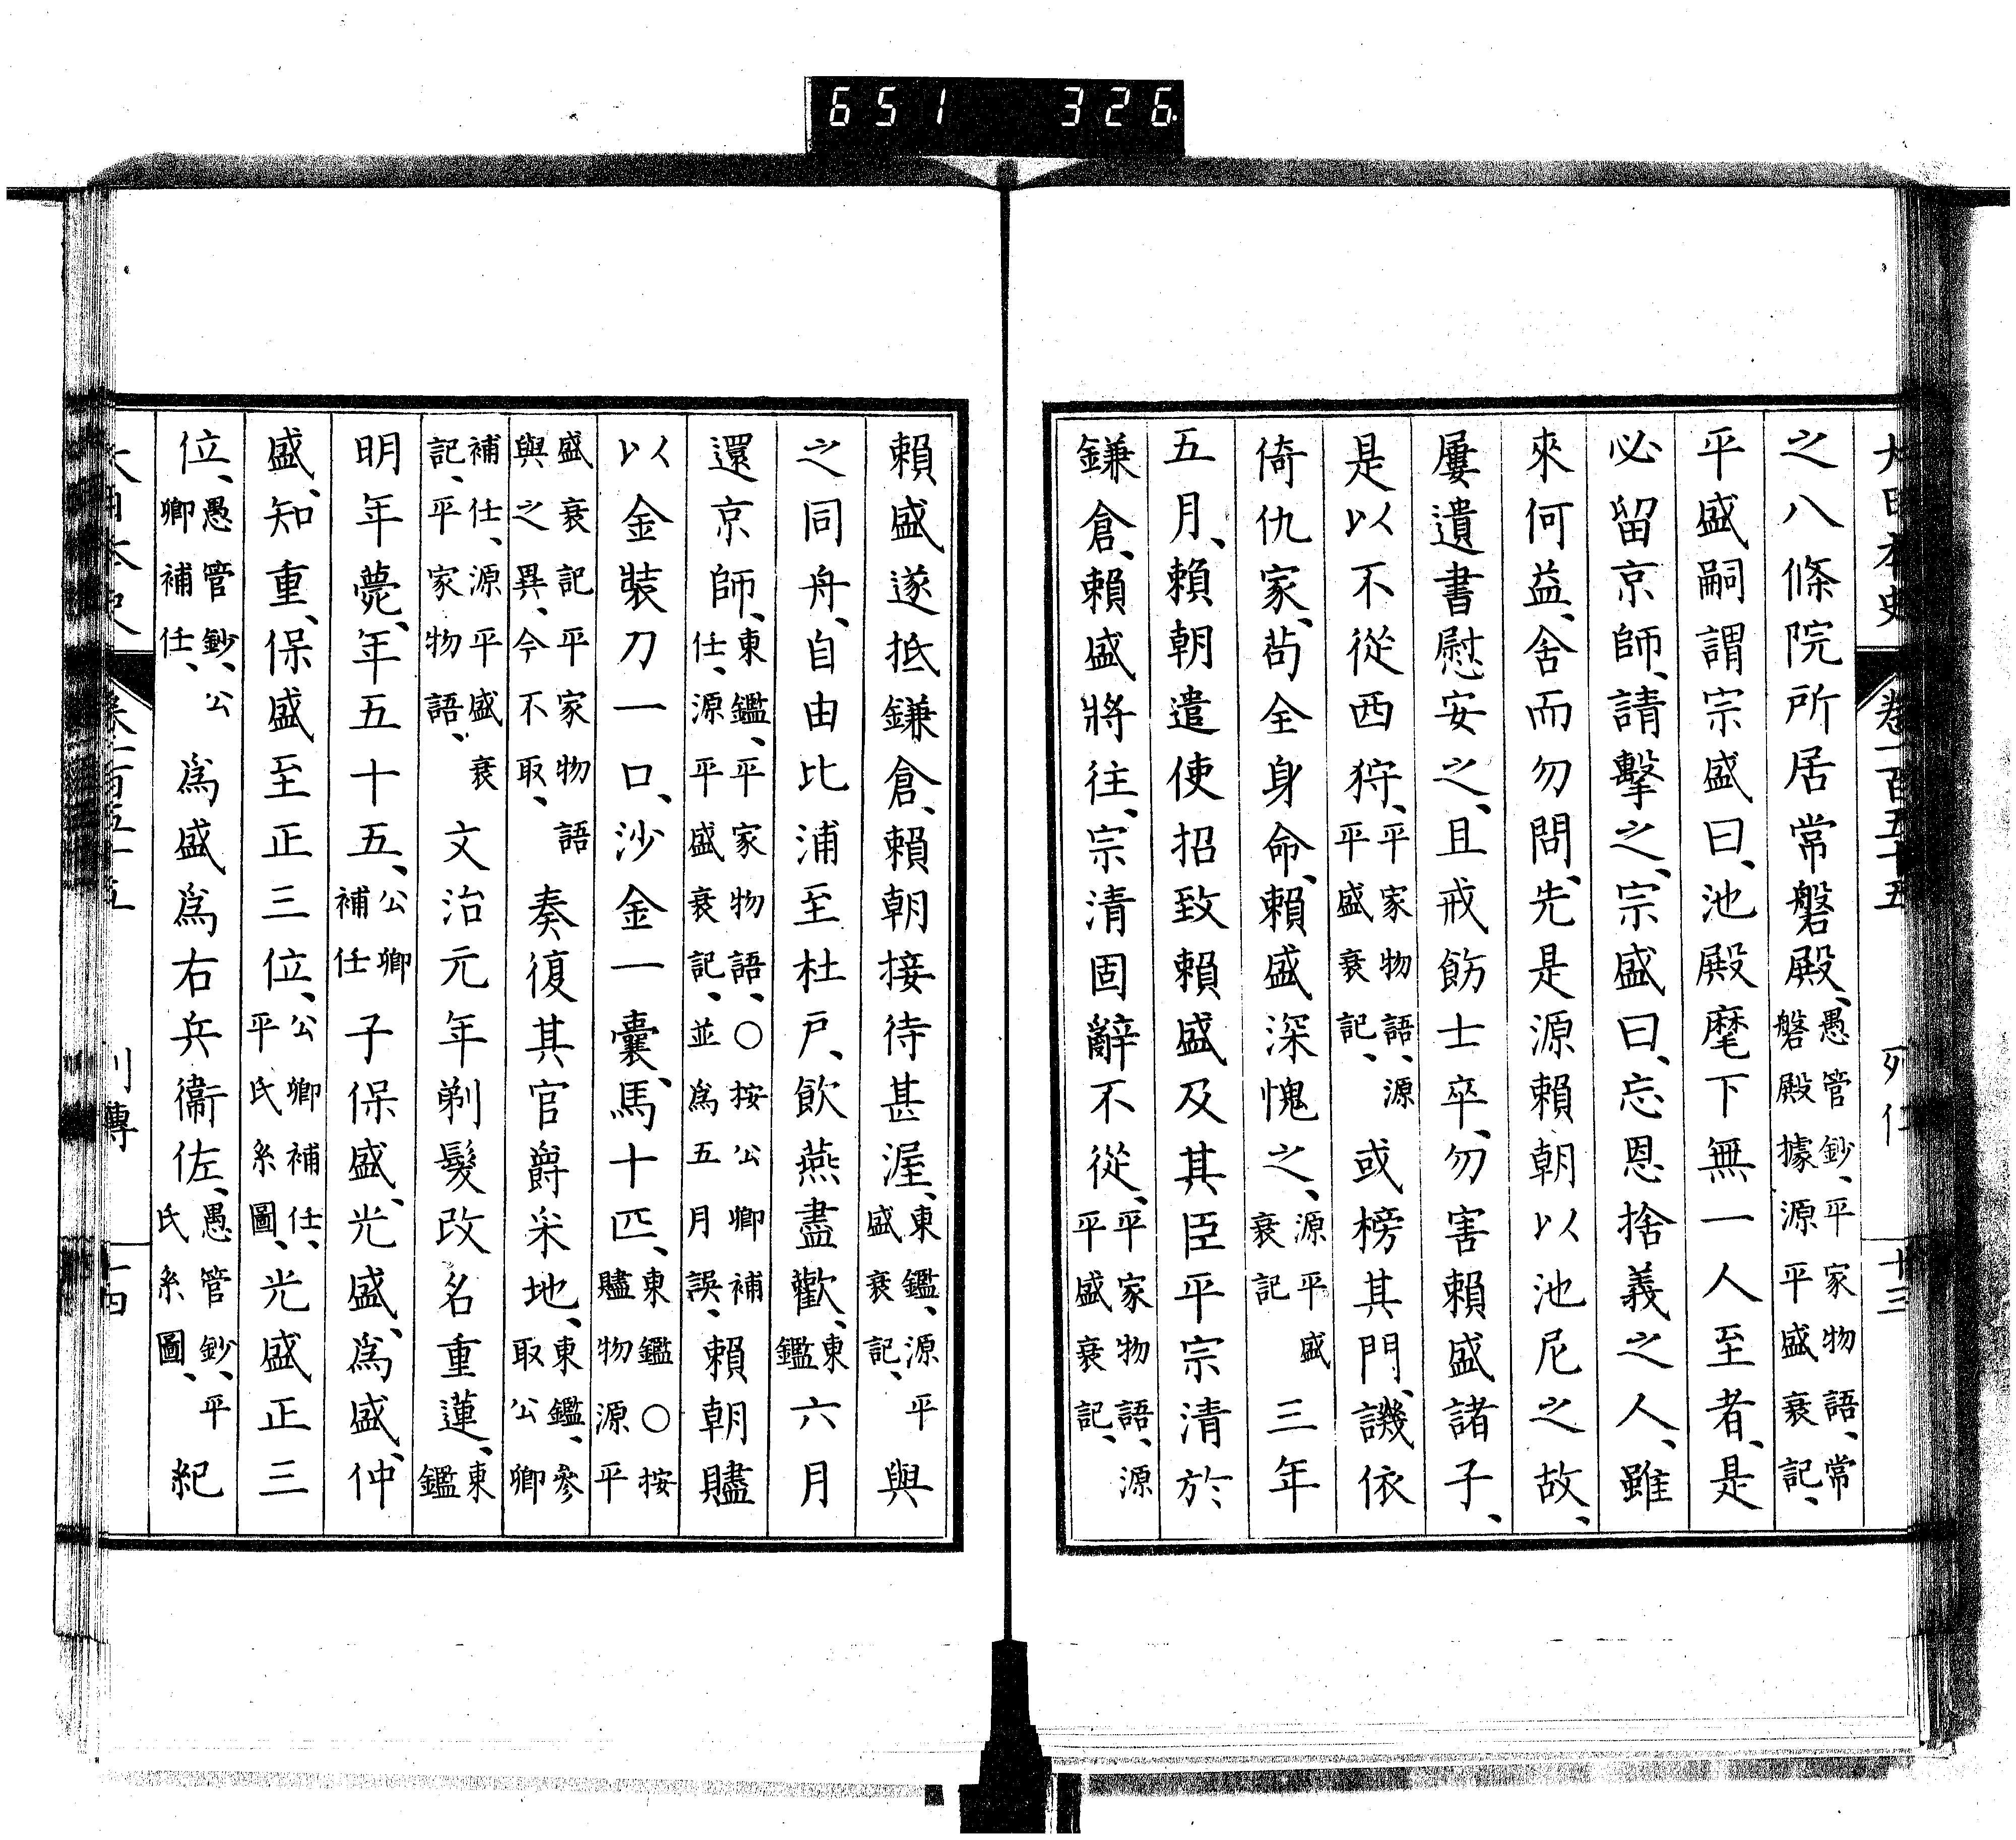 651 326
大日本史 卷一百五十五 列傳 十三
之八條院所居常磐殿、愚管鈔、平家物語、常磐殿據源平盛衰記、
平盛嗣謂宗盛曰、池殿麾下無一人至者、是
必留京師、請擊之、宗盛曰、忘恩捨義之人、雖
來何益、舍而勿問、先是源賴朝以池尼之故、
屢遺書慰安之、且戒飭士卒、勿害賴盛諸子、
是以不從西狩、平家物語、源平盛衰記、或榜其門、譏依
倚仇家、苟全身命、賴盛深愧之、源平盛衰記三年
五月、賴朝遣使招致賴盛及其臣平宗清於
鎌倉、賴盛將往、宗清固辭不從、平家物語、源平盛衰記、
賴盛遂抵鎌倉、賴朝接待甚渥、東鑑、源平盛衰記、與
之同舟、自由比浦至杜戶、飲燕盡歡、東鑑六月
還京師、東鑑、平家物語、○按公卿補任、源平盛衰記、並爲五月誤、賴朝贐
以金裝刀一口、沙金一囊、馬十匹、東鑑○按贐物源平
盛衰記平家物語與之異、今不取、奏復其官爵采地、東鑑、參取公卿
補任、源平盛衰記、平家物語、文治元年剃髮改名重蓮、東鑑
明年薨、年五十五、公卿補任子保盛、光盛、爲盛、仲
盛、知重、保盛至正三位、公卿補任、平氏系圖、光盛正三
位、愚管鈔、公卿補任、爲盛爲右兵衞佐、愚管鈔、平氏系圖、紀
大日本史 卷一百五十五 列傳 十四